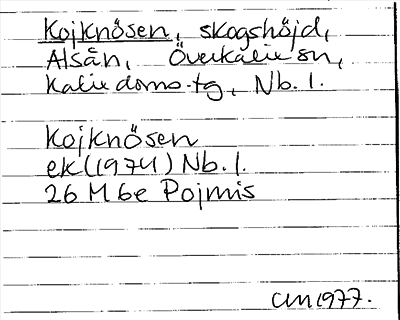 Kojknösen, skogshöjd,
Alsån, Överkalix sn,
Kalix doms.tg, Nb. l.
Kojknösen
ek (1974) Nb. l.
26 M 6e Pojmis
1977.